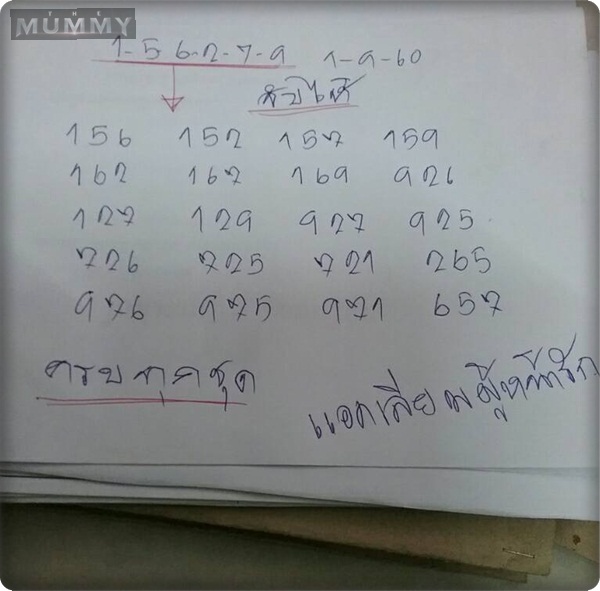 THE
MUMMY
1-5-6-2-7-9 1-9-60
156 152 157 159
162 167 169 926
127 129 927 925
726 725 721 265
976 975 971 657
ครบทุกชุด